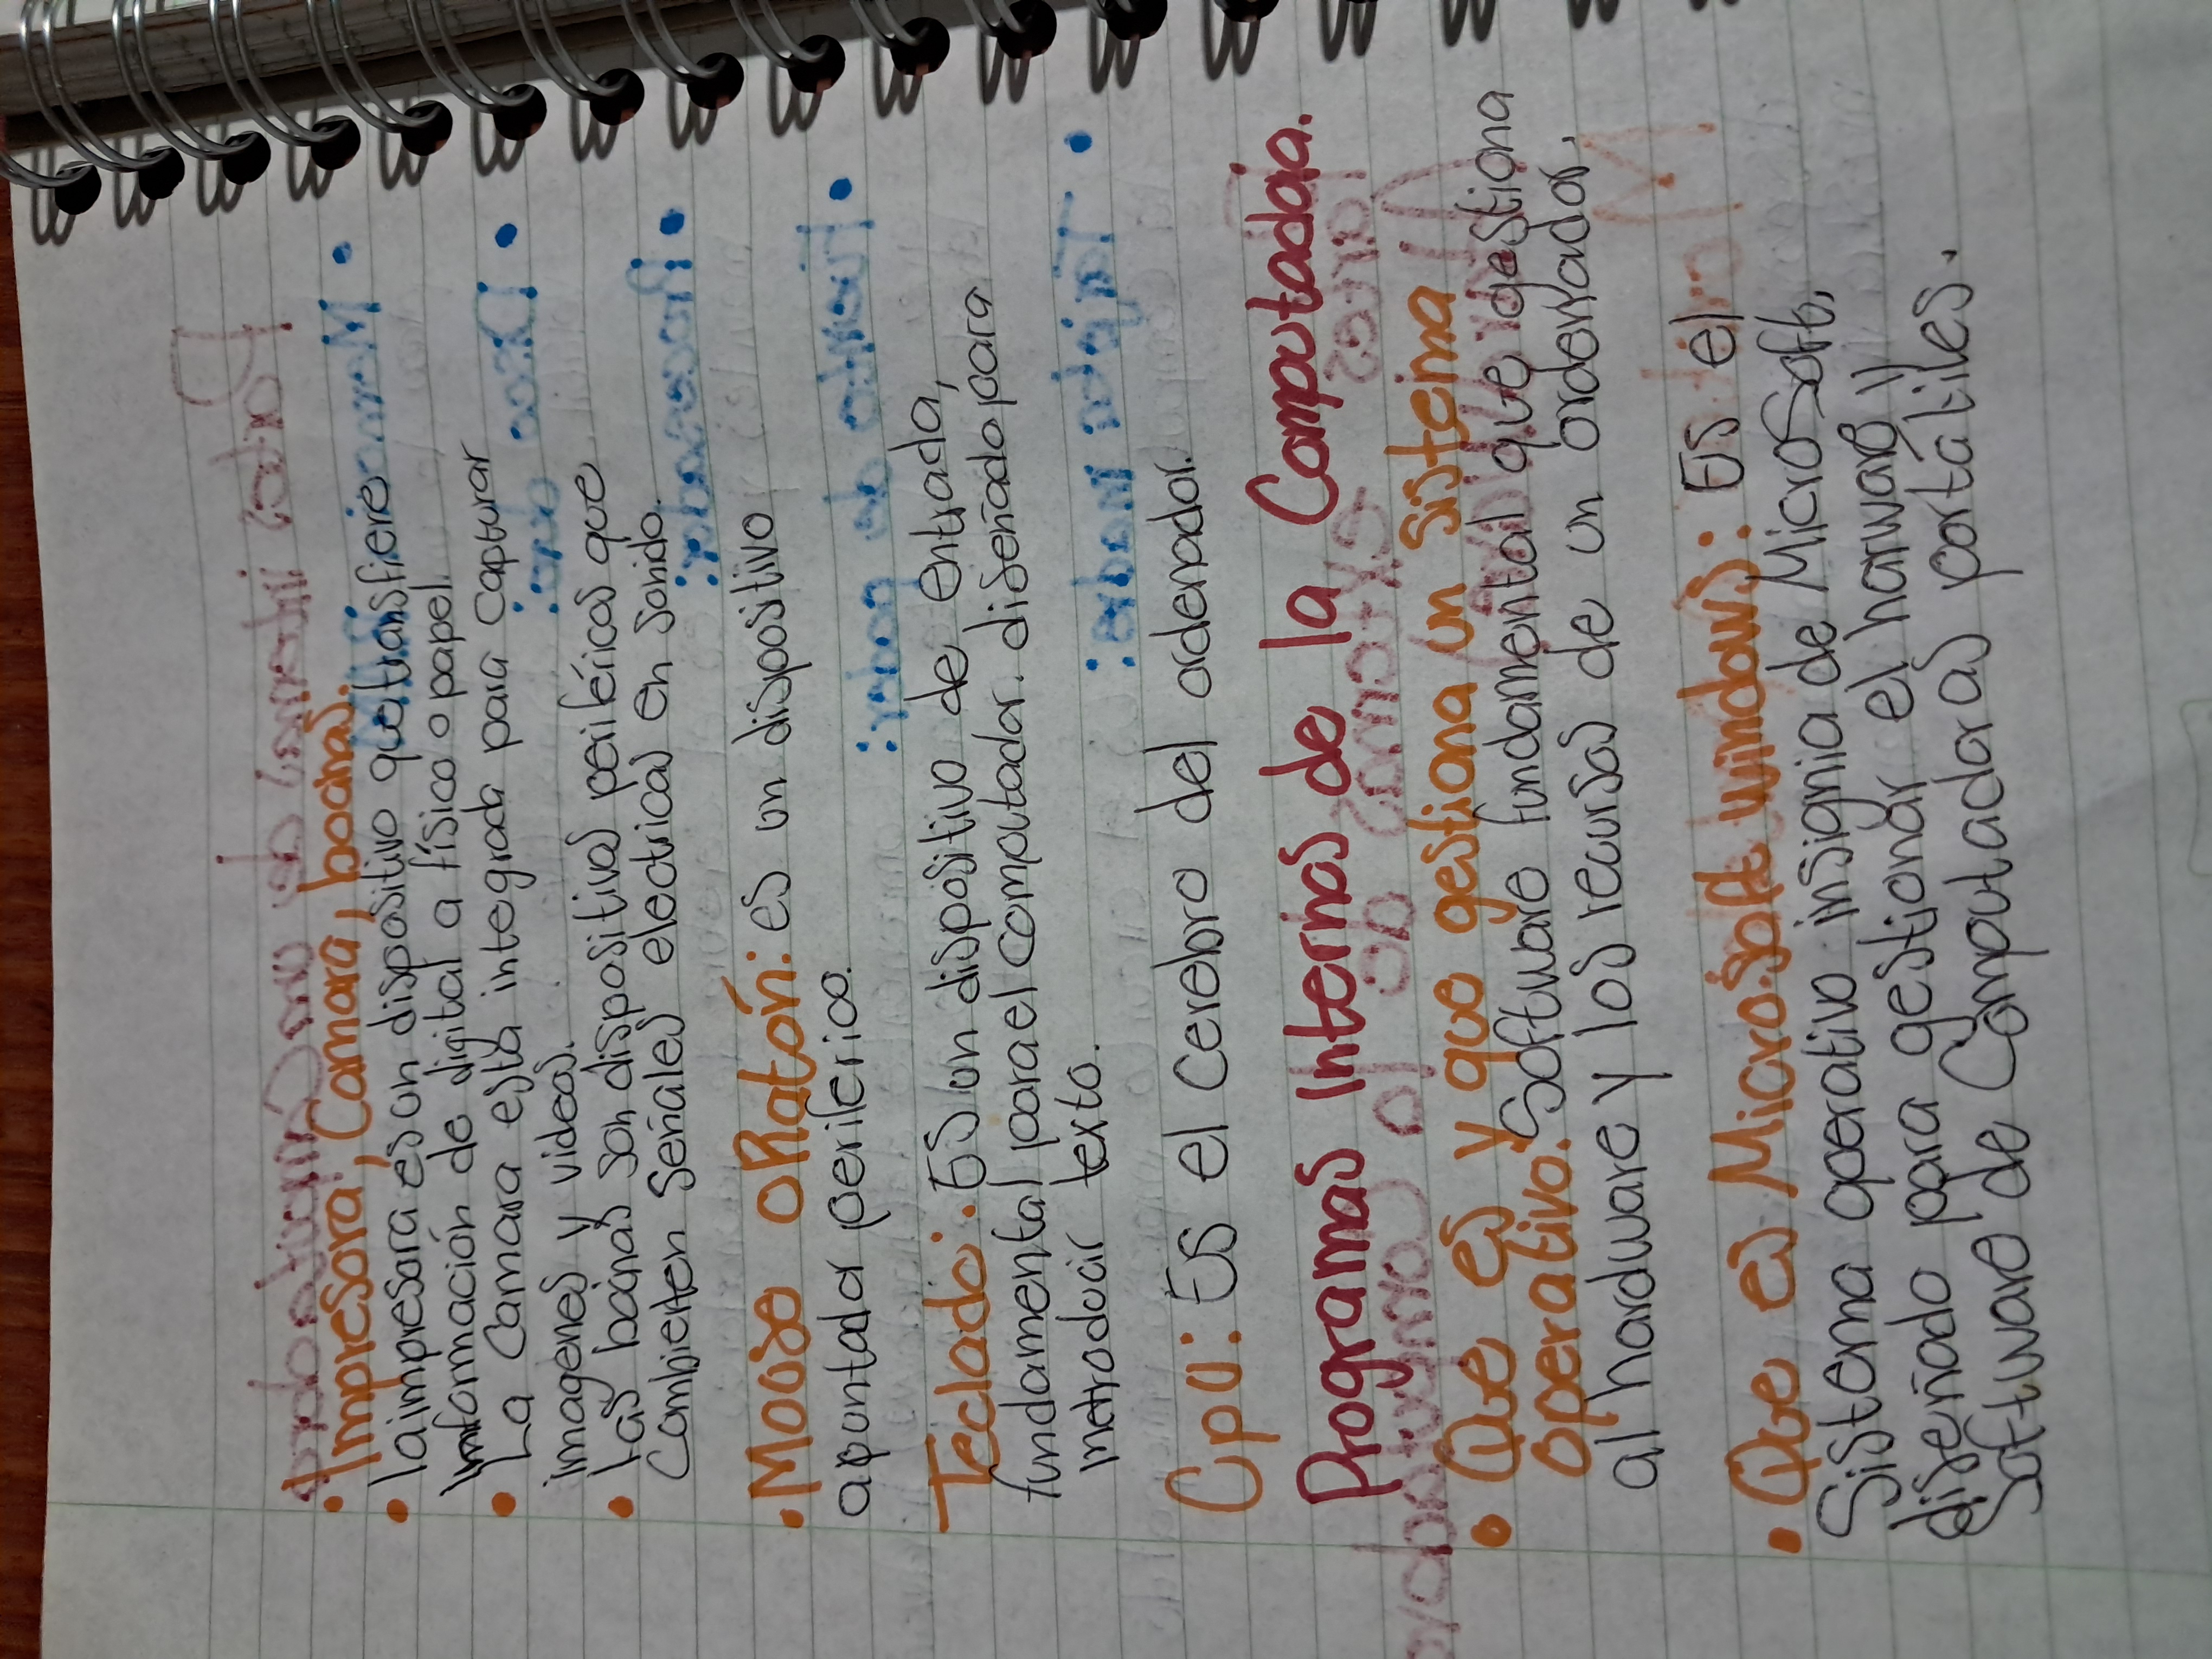 • Impresora, Camara, bocinas.
• la impresora es un dispositivo que transfiere
información de digital a físico o papel.
• La Camara está integrada para capturar
imagenes y videos.
• Las bocinas son dispositivos periféricos que
Combierten Señales electricas en sonido.
• Mouse o Ratón: es un dispositivo
apuntador periferico.
Teclado: Es un dispositivo de entrada,
fundamental para el computador. diseñado para
introducir texto.
Cpu: Es el Cerebro del ordenador.
Programas Internos de la Computadora.
• Que es y que gestiona un sistema
operativo: Software fundamental que gestiona
al hardware y los recursos de un ordenador.
• Que es Microsoft windows: Es el
Sistema operativo insignia de Microsoft,
diseñado para gestionar el harware y
Software de Computadoras portátiles.